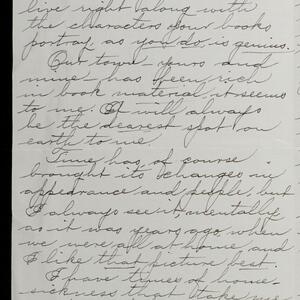 live right along with
the characters your books
portray, as you do, is genius.
Our town - yours and
mine - has been rich
in book material it seems
to me. It will always
be the dearest spot on
earth to me.
Time has, of course
brought its changes in
appearance and people, but
I always see it, mentally
as it was years ago when
we were all at home, and
I like that picture best.
I have times of home-
sickness that take me